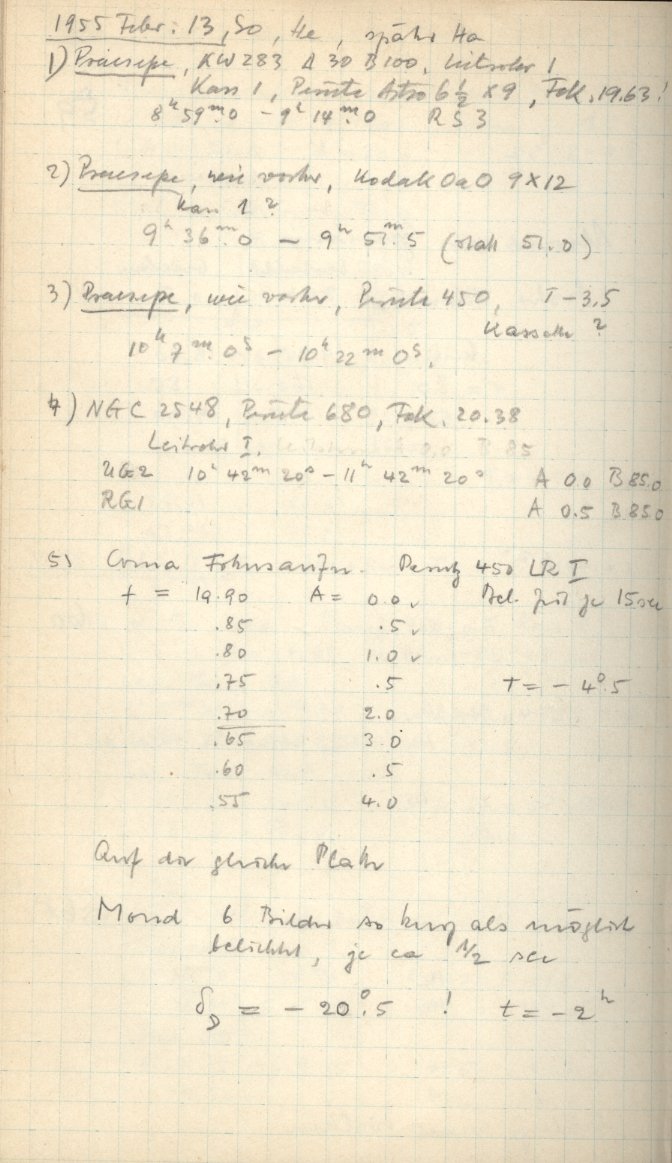 1955 Febr. 13, So, He, später Ha
1) Praesepe, KW 283 A 30 B 100, Leitrohr I
Kass 1, Perutz Astro 6 1/2 x 9, Fok. 19.63!
8h 59m.0 - 9h 14m.0 RS 3
2) Praesepe, wie vorher, Kodak OaO 9 x 12
Kass 1 ?
9h 36m.0 - 9h 51m.5 (statt 51.0)
3) Praesepe, wie vorher, Perutz 450, T-3.5
Kassette ?
10h 7m 0s - 10h 22m 0s.
4) NGC 2548, Perutz 680, Fok. 20.38
Leitrohr I.
UG2 10h 42m 20s - 11h 42m 20s A 0.0 B 85.0
RG1 A 0.5 B 85.0
5) Coma Fokusaufn. Perutz 450 LR I
f = 19.90 A = 0.0 ✓ Bel. zeit je 15 sec
.85 .5 ✓
.80 1.0 ✓
.75 .5 T = - 4°.5
.70 2.0
.65 3.0
.60 .5
.55 4.0
Auf der gleichen Platte
Mond 6 Bilder so kurz als möglich
belichtet, je ca 1/2 sec
δ☽ = - 20°.5 ! t = - 2h